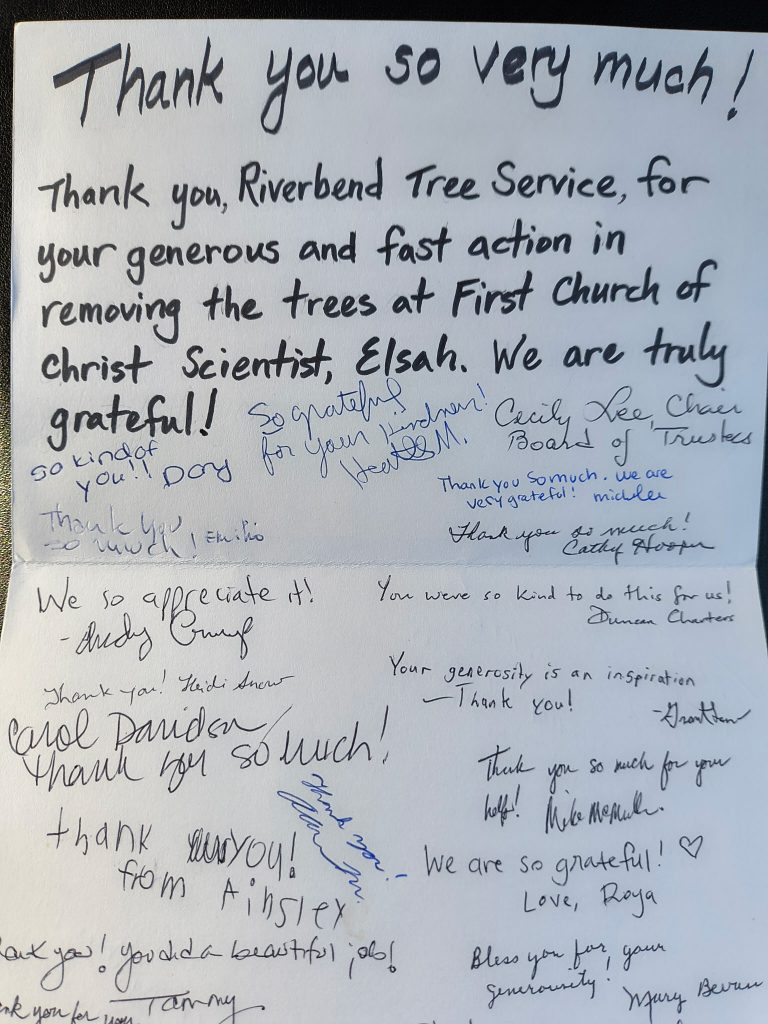 Thank you so very much!
Thank you, Riverbend Tree Service, for
your generous and fast action in
removing the trees at First Church of
Christ Scientist, Elsah. We are truly
grateful!
So grateful
for your kindness!
M.
Cecily Lee, Chair
Board of Trustees
So kind of
you!! Dory
Thank you so much. we are
very grateful! michelee
Thank you
so much! Emilio
Thank you so much!
Cathy Hooper
We so appreciate it!
You were so kind to do this for us!
Duncan Charters
Thank you! Heidi Snow
Your generosity is an inspiration
—Thank you!
Carol Davidson
thank you so much!
Thank you so much for your
help! Mike
Thank you!
thank you!
from Ainsley
We are so grateful! ♡
Love, Roya
you! You did a beautiful job!
Tammy
you for
Bless you for your
generousity!
Mary Bevan